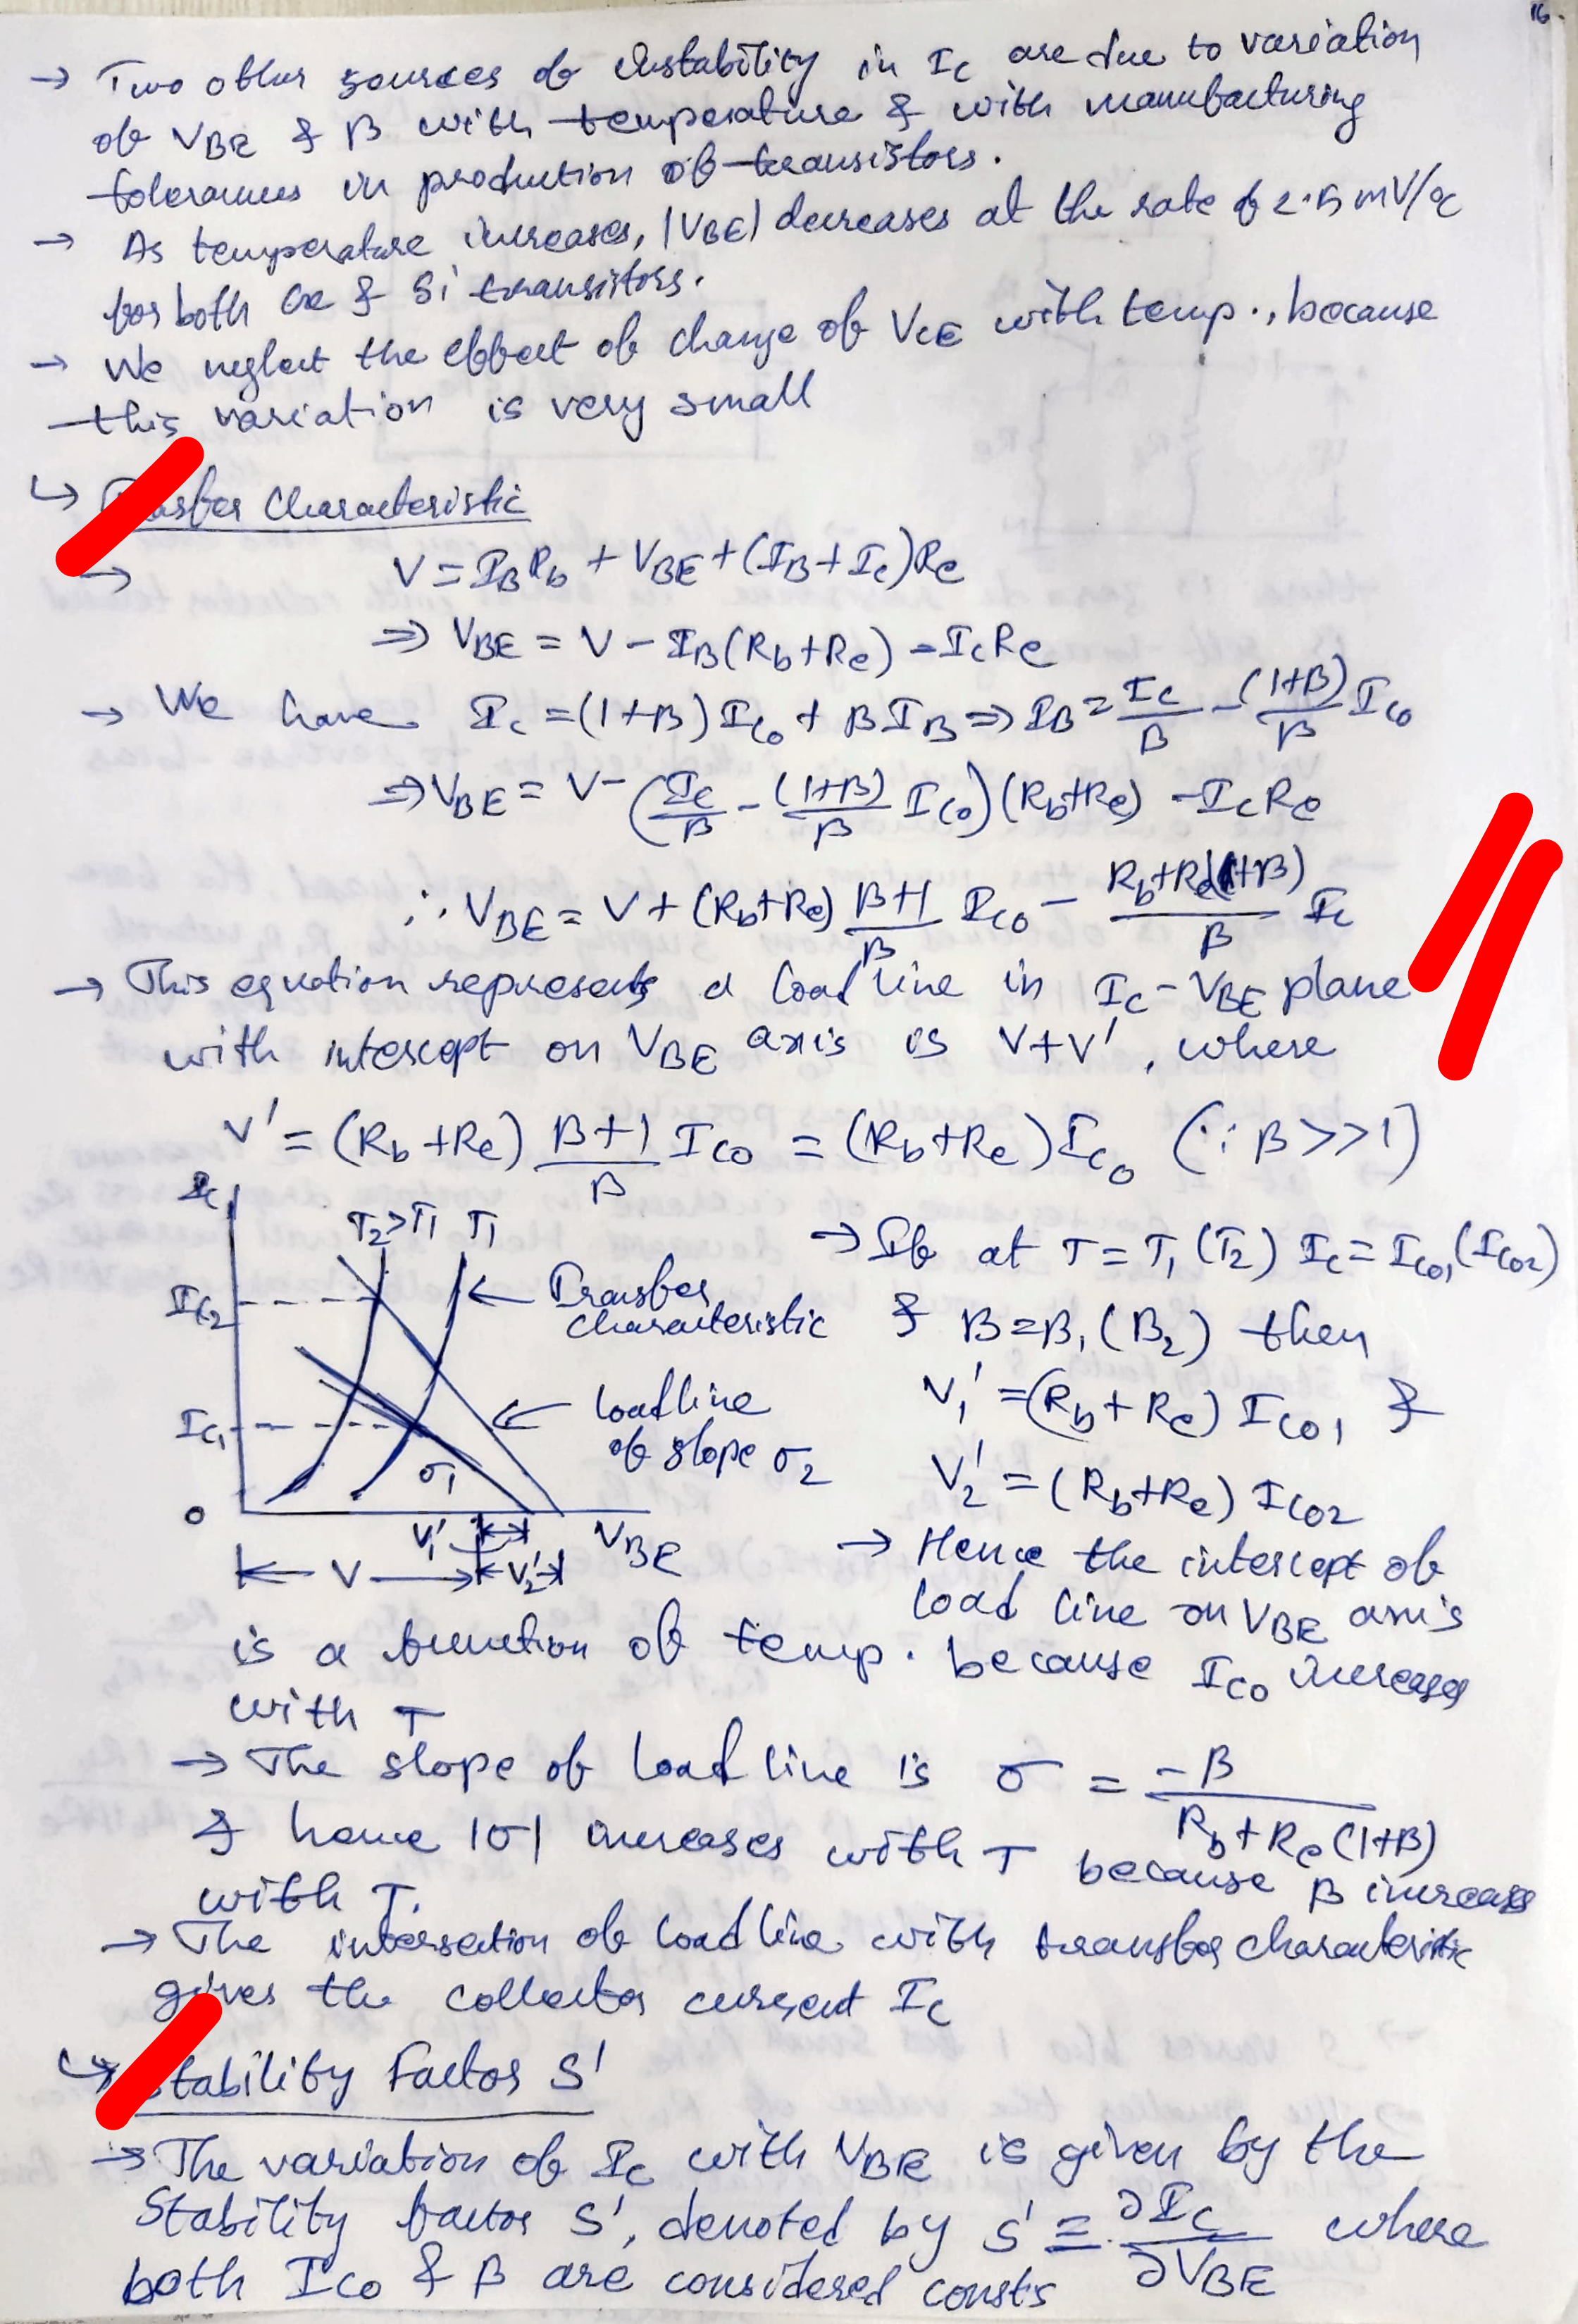 16.
→ Two other sources of Instability in Ic are due to variation
of VBE & β with temperature & with manufacturing
tolerances in production of transistors.
→ As temperature increases, |VBE| decreases at the rate of 2.5 mV/°C
for both Ge & Si transistors.
→ We neglect the effect of change of VCE with temp., because
this variation is very small
↳ Characteristic
→ V = IB Rb + VBE + (IB + Ic) Re
⇒ VBE = V - IB(Rb+Re) - IcRe
→ We have Ic = (1+β) Ico + β IB ⇒ IB = Ic/β - (1+β)/β Ico
⇒ VBE = V - (Ic/β - (1+β)/β Ico)(Rb+Re) - IcRe
∴ VBE = V + (Rb+Re) β+1/β Ico - Rb+Re(1+β)/β Ic
→ This equation represents a load line in Ic - VBE plane
with intercept on VBE axis is V+V', where
V' = (Rb+Re) β+1/β Ico = (Rb+Re)Ico (∵ β>>1)
Ic
T2>T1 T1
Ic2
Ic1
0
← Transfer
characteristic
← load line
of slope σ2
σ1
V1'
V2'
V
VBE
→ If at T = T1 (T2) Ic = Ico1 (Ico2)
& β = β1 (β2) then
V1' = (Rb + Re) Ico1 &
V2' = (Rb+Re) Ico2
→ Hence the intercept of
load line on VBE axis
is a function of temp. because Ico increases
with T
→ The slope of load line is σ = -β/Rb+Re(1+β)
& hence |σ| increases with T because β increases
with T.
→ The intersection of load line with transfer characteristic
gives the collector current Ic
↳ Stability Factor S'
→ The variation of Ic with VBE is given by the
Stability factor S', denoted by S' ≡ ∂Ic/∂VBE where
both Ico & β are considered consts